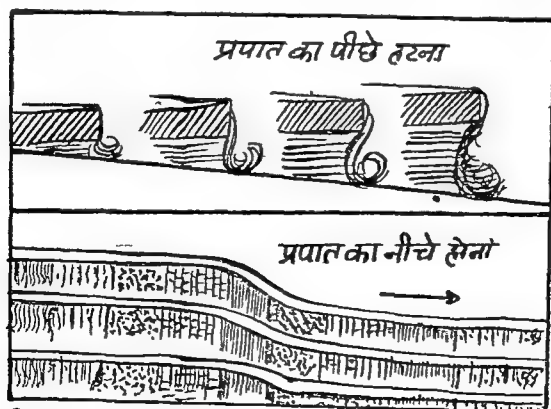 प्रपात का पीछे हटना
प्रपात का नीचे होना